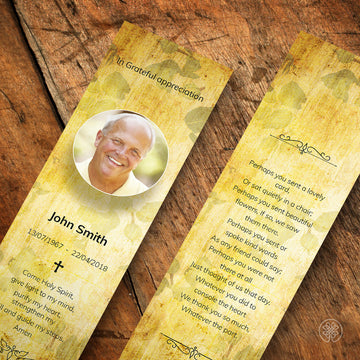 In Grateful appreciation
John Smith
13/07/1967 - 22/04/2018
Come Holy Spirit,
give light to my mind,
purify my heart,
strengthen my
and guide my steps.
Amen
Perhaps you sent a lovely
card,
Or sat quietly in a chair;
Perhaps you sent beautiful
flowers, If so, we saw
them there.
Perhaps you sent or
spoke kind words
As any friend could say;
Perhaps you were not
there at all
Just thought of us that day.
Whatever you did to
console the heart.
We thank you so much,
Whatever the part.